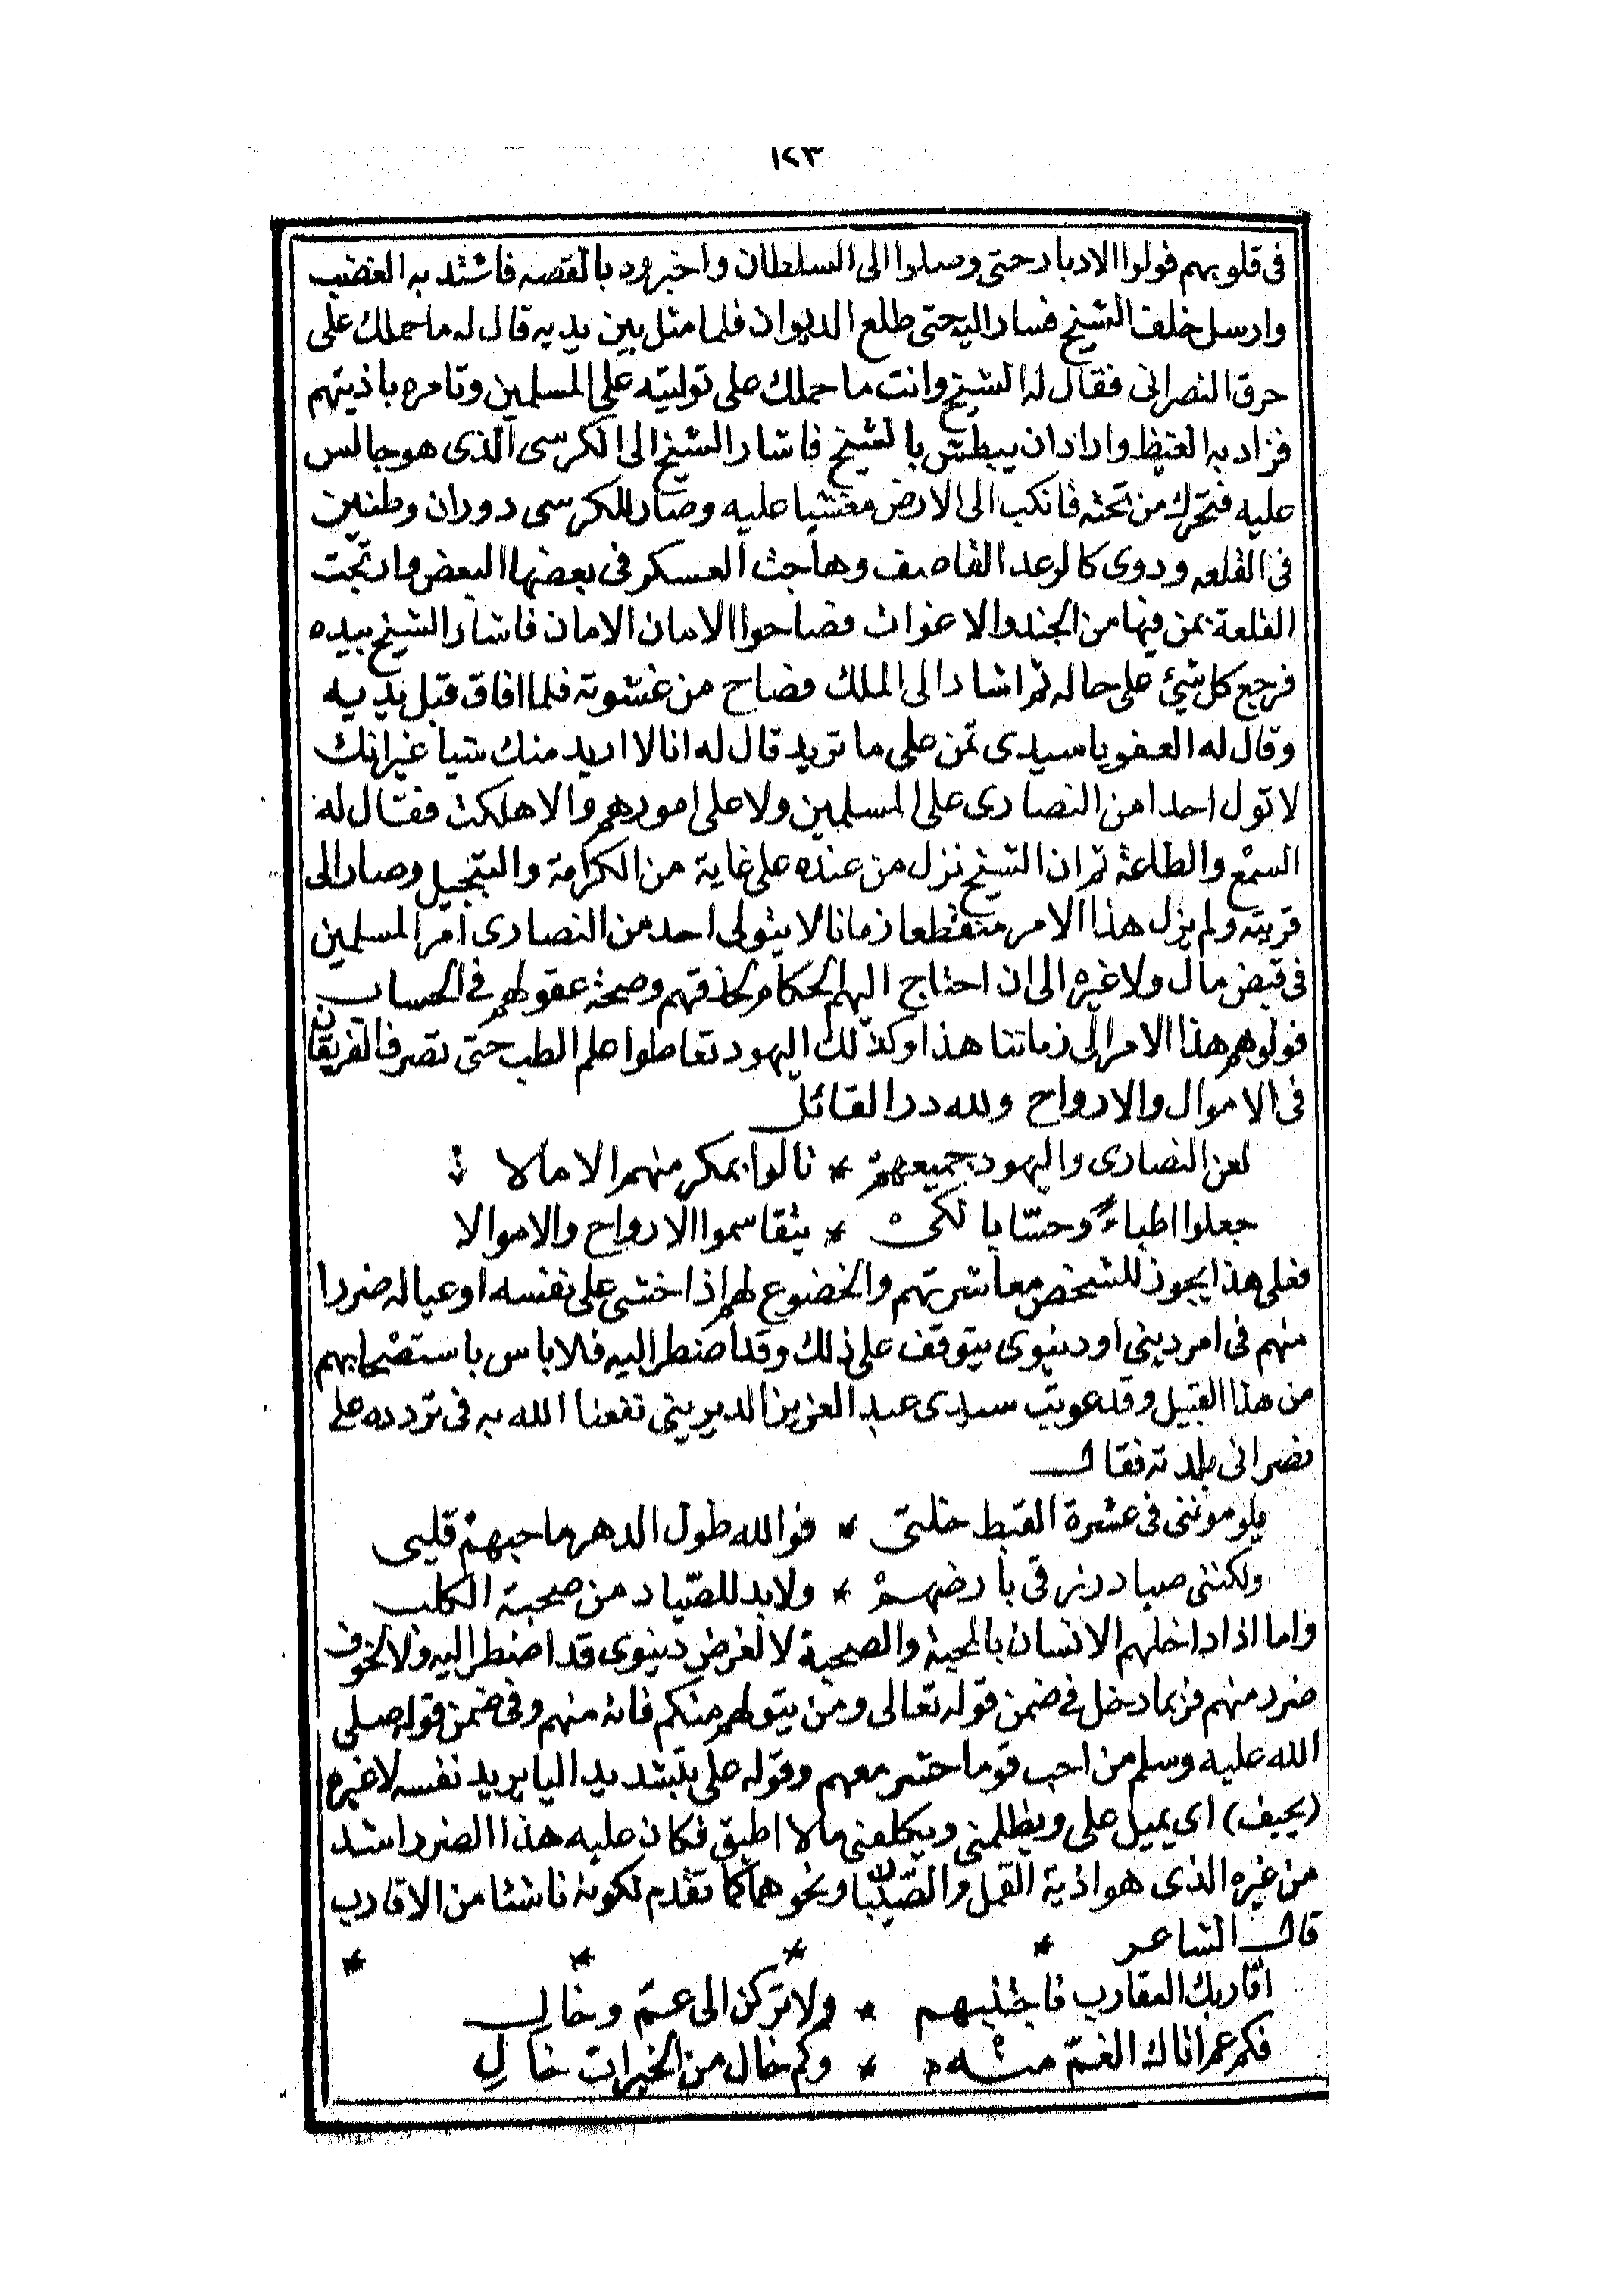 ١٢٣
فى قلوبهم فولوا الادبار حتى وصلوا الى السلطان واخبروه بالقصه فاشتد به الغضب
وارسل خلف الشيخ فسار اليه حتى طلع الديوان فلما مثل بين يديه قال له ما حملك على
حرق النصرانى فقال له الشيخ وانت ما حملك على توليته على المسلمين وتامره باذيتهم
فزاد به الغيظ واراد ان يبطش بالشيخ فاشار الشيخ الى الكرسى الذى هو جالس
عليه فتحرك من تحته فانكب الى الارض مغشيا عليه وصار للكرسى دوران وطنين
فى القلعه ودوى كالرعد القاصف وهاجت العسكر فى بعضها البعض وارتجت
القلعة بمن فيها من الجند والاعوان فصاحوا الامان الامان فاشار الشيخ بيده
فرجع كل شئ على حاله ثم اشار الى الملك فصاح من غشوته فلما افاق قبل يديه
وقال له العفو يا سيدى تمن على ما تريد قال له انا لا اريد منك شيا غير انك
لا تول احدا من النصارى على المسلمين ولا على امورهم والا هلكت فقال له
السمع والطاعة ثم ان الشيخ نزل من عنده على غاية من الكرامة والتبجيل وصار الى
قريته ولم يزل هذا الامر منقطعا زمانا لا يتولى احد من النصارى امر المسلمين
فى قبض مال ولا غيره الى ان احتاج اليهم الحكام لحذقهم وصحة عقولهم فى الحساب
فولوهم هذا الامر الى زماننا هذا وكذلك اليهود تعاطوا علم الطب حتى تصرف الفريقان
فى الاموال والارواح ولله در القائل
لعن النصارى واليهود جميعهم * نالوا بمكر منهم الامالا
جعلوا اطباءً وحسّابا لكى * يتقاسموا الارواح والاموالا
فعلى هذا يجوز للشخص معاشرتهم والخضوع لهم اذا خشى على نفسه او عياله ضررا
منهم فى امر دينى او دنيوى يتوقف على ذلك وقد اضطر اليه فلا باس باستصحابهم
من هذا القبيل وقد عوتب سيدى عبد العزيز الديرينى نفعنا الله به فى تردده على
نصرانى بلدته فقال
يلوموننى فى عشرة القبط خلتى * فوالله طول الدهر ما حبهم قلبى
ولكننى صياد رزقى بارضهم * ولا بد للصّياد من صحبة الكلب
واما اذا داخلهم الانسان بالمحبة والصحبة لا لغرض دنيوى قد اضطر اليه ولا لخوف
ضرر منهم فربما دخل فى ضمن قوله تعالى ومن يتولهم منكم فانه منهم وفى ضمن قوله صلى
الله عليه وسلم من احب قوما حشر معهم وقوله على بتشديد اليا يريد نفسه لا غيره
(يحيف) اى يميل على ويظلمنى ويكلفنى مالا اطيق فكان عليه هذا الضرر اشد
من غيره الذى هو اذية القمل والصّيبان ونحوهما كما تقدم لكونه ناشئا من الاقارب
قال الشاعر * * * *
اقاربك العقارب فاجتنبهم * ولا تركن الى عمّ وخال
فكم عم اتاك الغمّ منه * وكم خال من الخيرات خالِ